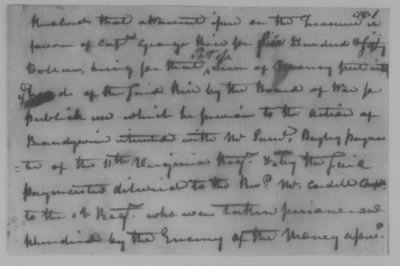 401
Resolved that a Warrant issue on the Treasurer in
favour of Capt. George Rice for five Hundred & fifty
Dollars, being for that Sum of Money put into
Hands of the said Rice by the Board of War for
publick use which he previous to the action of
Brandywine intrusted with Mr Saml. Bagby paymas
ter of the 11th Virginia Regt. & by the said
paymaster delivered to the Revd. Mr. Cordell Chapln.
to the sd. Regt. who was taken prisoner and
plundred by the Enemy of the Money afors.